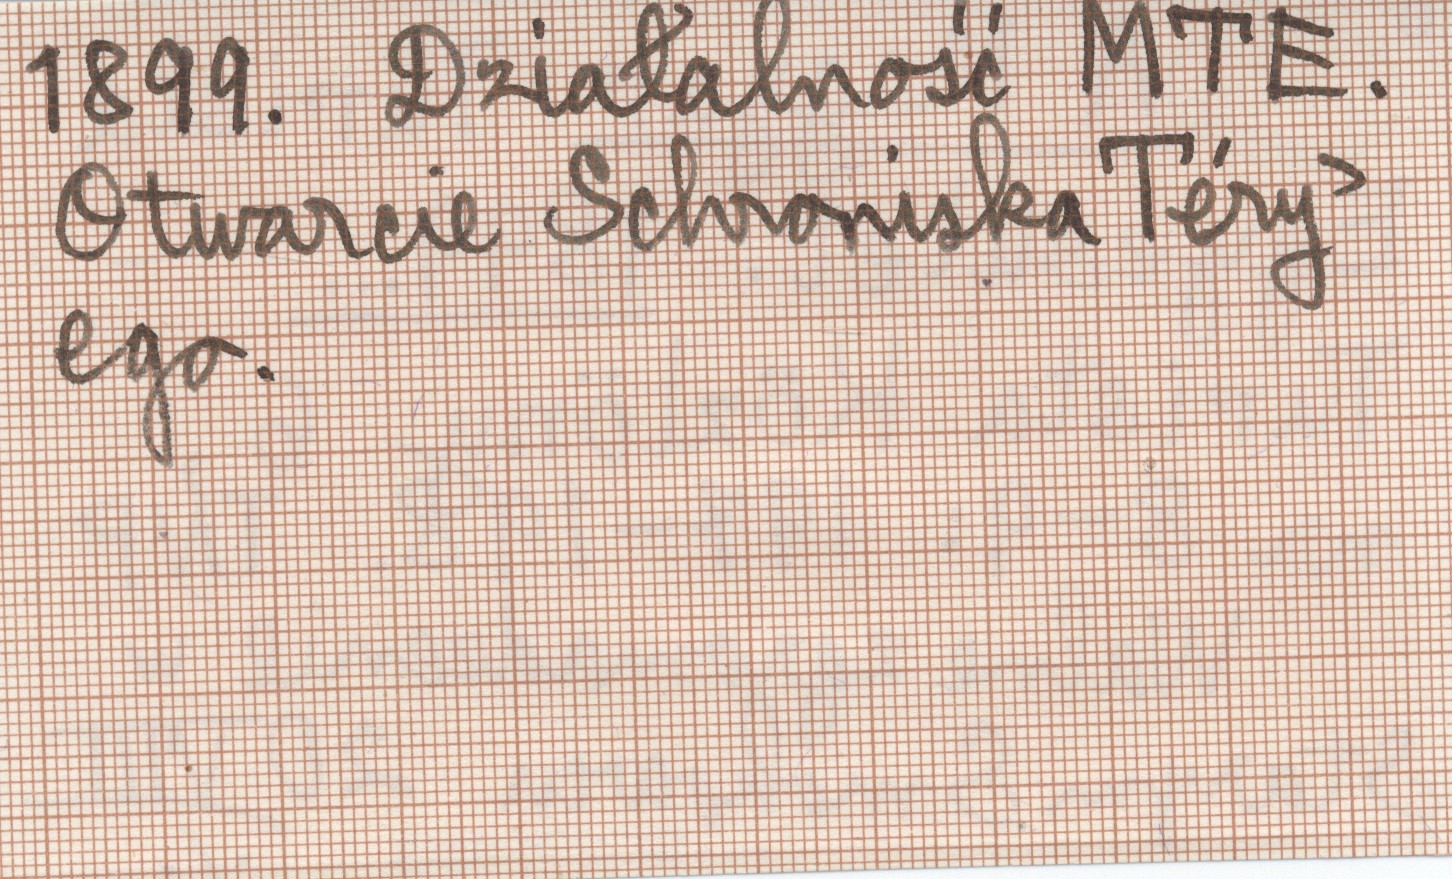 1899. Działalność MTE.
Otwarcie Schroniska Téry>
ego.